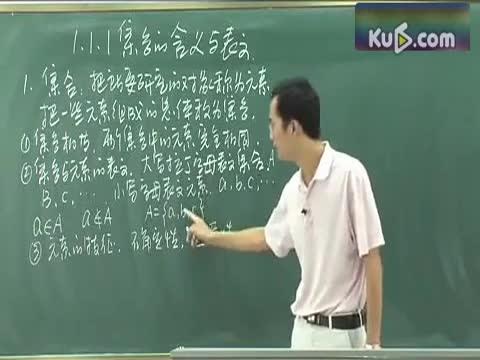 Ku6.com
1.1.1集合的含义与表示
1. 集合：把研究的对象称为元素
把一些元素组成的总体称为集合.
①集合相等，两个集合中的元素完全相同
②集合与元素的表示，大写拉丁字母表示集合，A
B，C，… 小写字母表示元素，a，b，c，…
a∈A a∉A A={a,b,c}
③元素的特征：